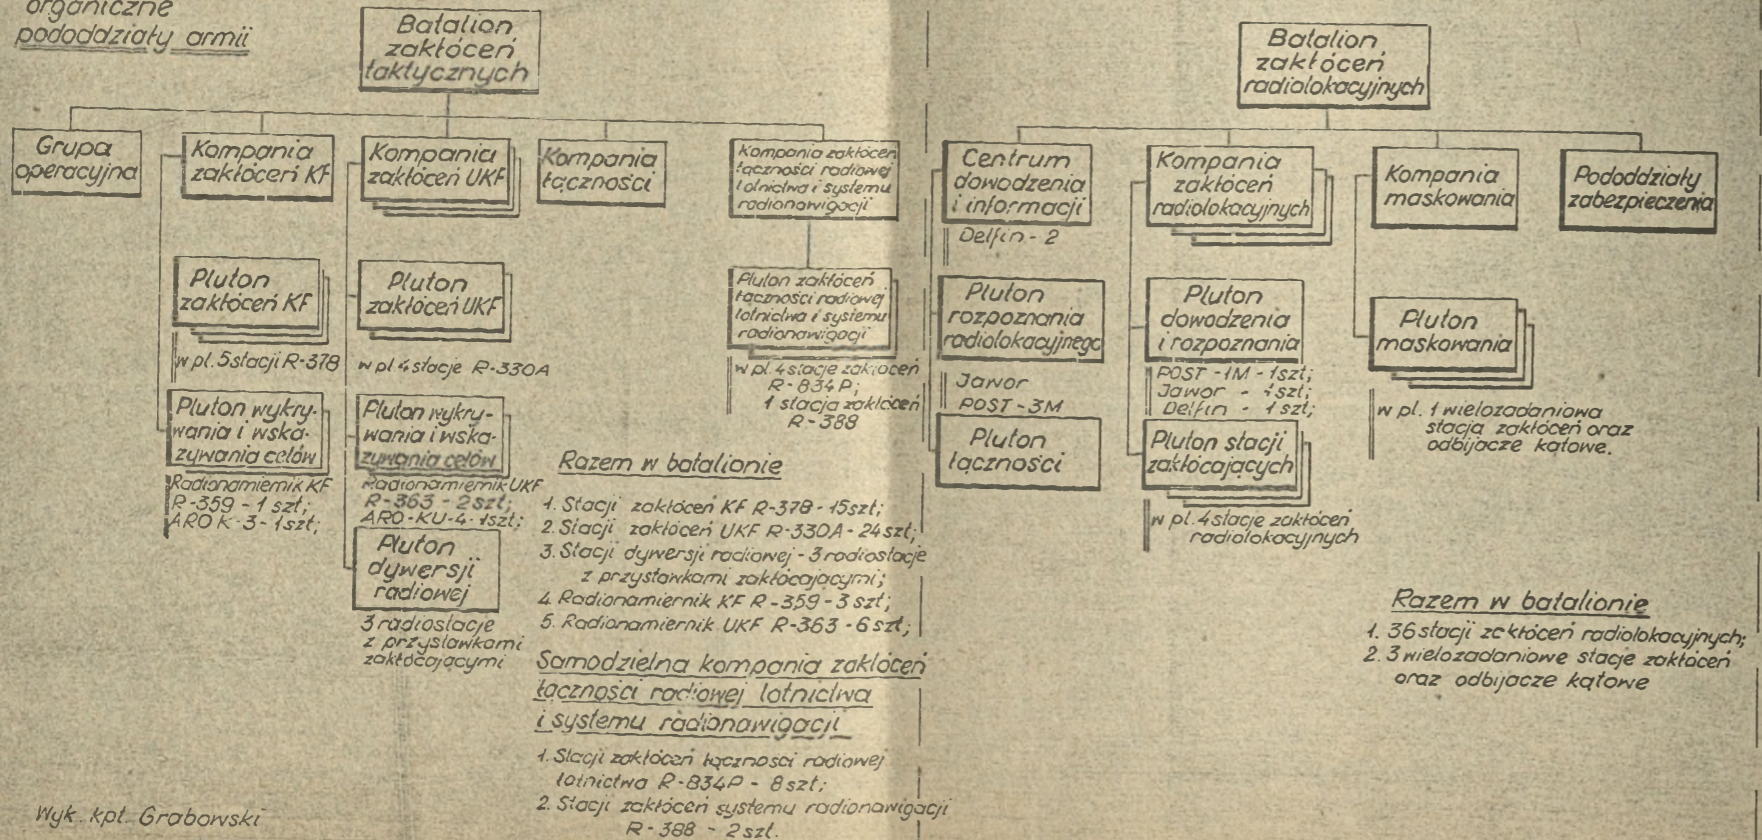 organiczne
pododdziały armii
Batalion
zakłóceń
taktycznych
Grupa
operacyjna
Kompania
zakłóceń KF
Kompania
zakłóceń UKF
Kompania
łączności
Kompania zakłóceń
łączności radiowej
lotnictwa i systemu
radionawigacji
Pluton
zakłóceń KF
w pl. 5 stacji R-378
Pluton wykry-
wania i wska-
zywania celów
Radionamiernik KF
R-359 - 1 szt;
ARO K-3 - 1szt;
Pluton
zakłóceń UKF
w pl 4 stacje R-330A
Pluton wykry-
wania i wska-
zywania celów
Radionamiernik UKF
R-363 - 2szt;
ARO-KU-4-1szt;
Pluton
dywersji
radiowej
3 radiostacje
z przystawkami
zakłócającymi
Pluton zakłóceń
łączności radiowej
lotnictwa i systemu
radionawigacji
w pl. 4 stacje zakłóceń
R-834P;
1 stacja zakłóceń
R-388
Razem w batalionie
1. Stacji zakłóceń KF R-378 - 15szt;
2. Stacji zakłóceń UKF R-330A - 24szt;
3. Stacji dywersji radiowej - 3 radiostacje
z przystawkami zakłócającymi;
4. Radionamiernik KF R-359 - 3 szt;
5. Radionamiernik UKF R-363 - 6szt;
Samodzielna kompania zakłóceń
łączności radiowej lotnictwa
i systemu radionawigacji
1. Stacji zakłóceń łączności radiowej
lotnictwa R-834P - 8szt;
2. Stacji zakłóceń systemu radionawigacji
R-388 - 2szt.
Wyk. kpt. Grabowski
Batalion
zakłóceń
radiolokacyjnych
Centrum
dowodzenia
i informacji
Delfin - 2
Pluton
rozpoznania
radiolokacyjnego
Jawor
POST-3M
Pluton
łączności
Kompania
zakłóceń
radiolokacyjnych
Pluton
dowodzenia
i rozpoznania
POST-1M - 1szt;
Jawor - 1szt;
Delfin - 1szt;
Pluton stacji
zakłócających
w pl. 4 stacje zakłóceń
radiolokacyjnych
Kompania
maskowania
Pluton
maskowania
w pl. 1 wielozadaniowa
stacja zakłóceń oraz
odbijacze kątowe.
Pododdziały
zabezpieczenia
Razem w batalionie
1. 36 stacji zakłóceń radiolokacyjnych;
2. 3 wielozadaniowe stacje zakłóceń
oraz odbijacze kątowe